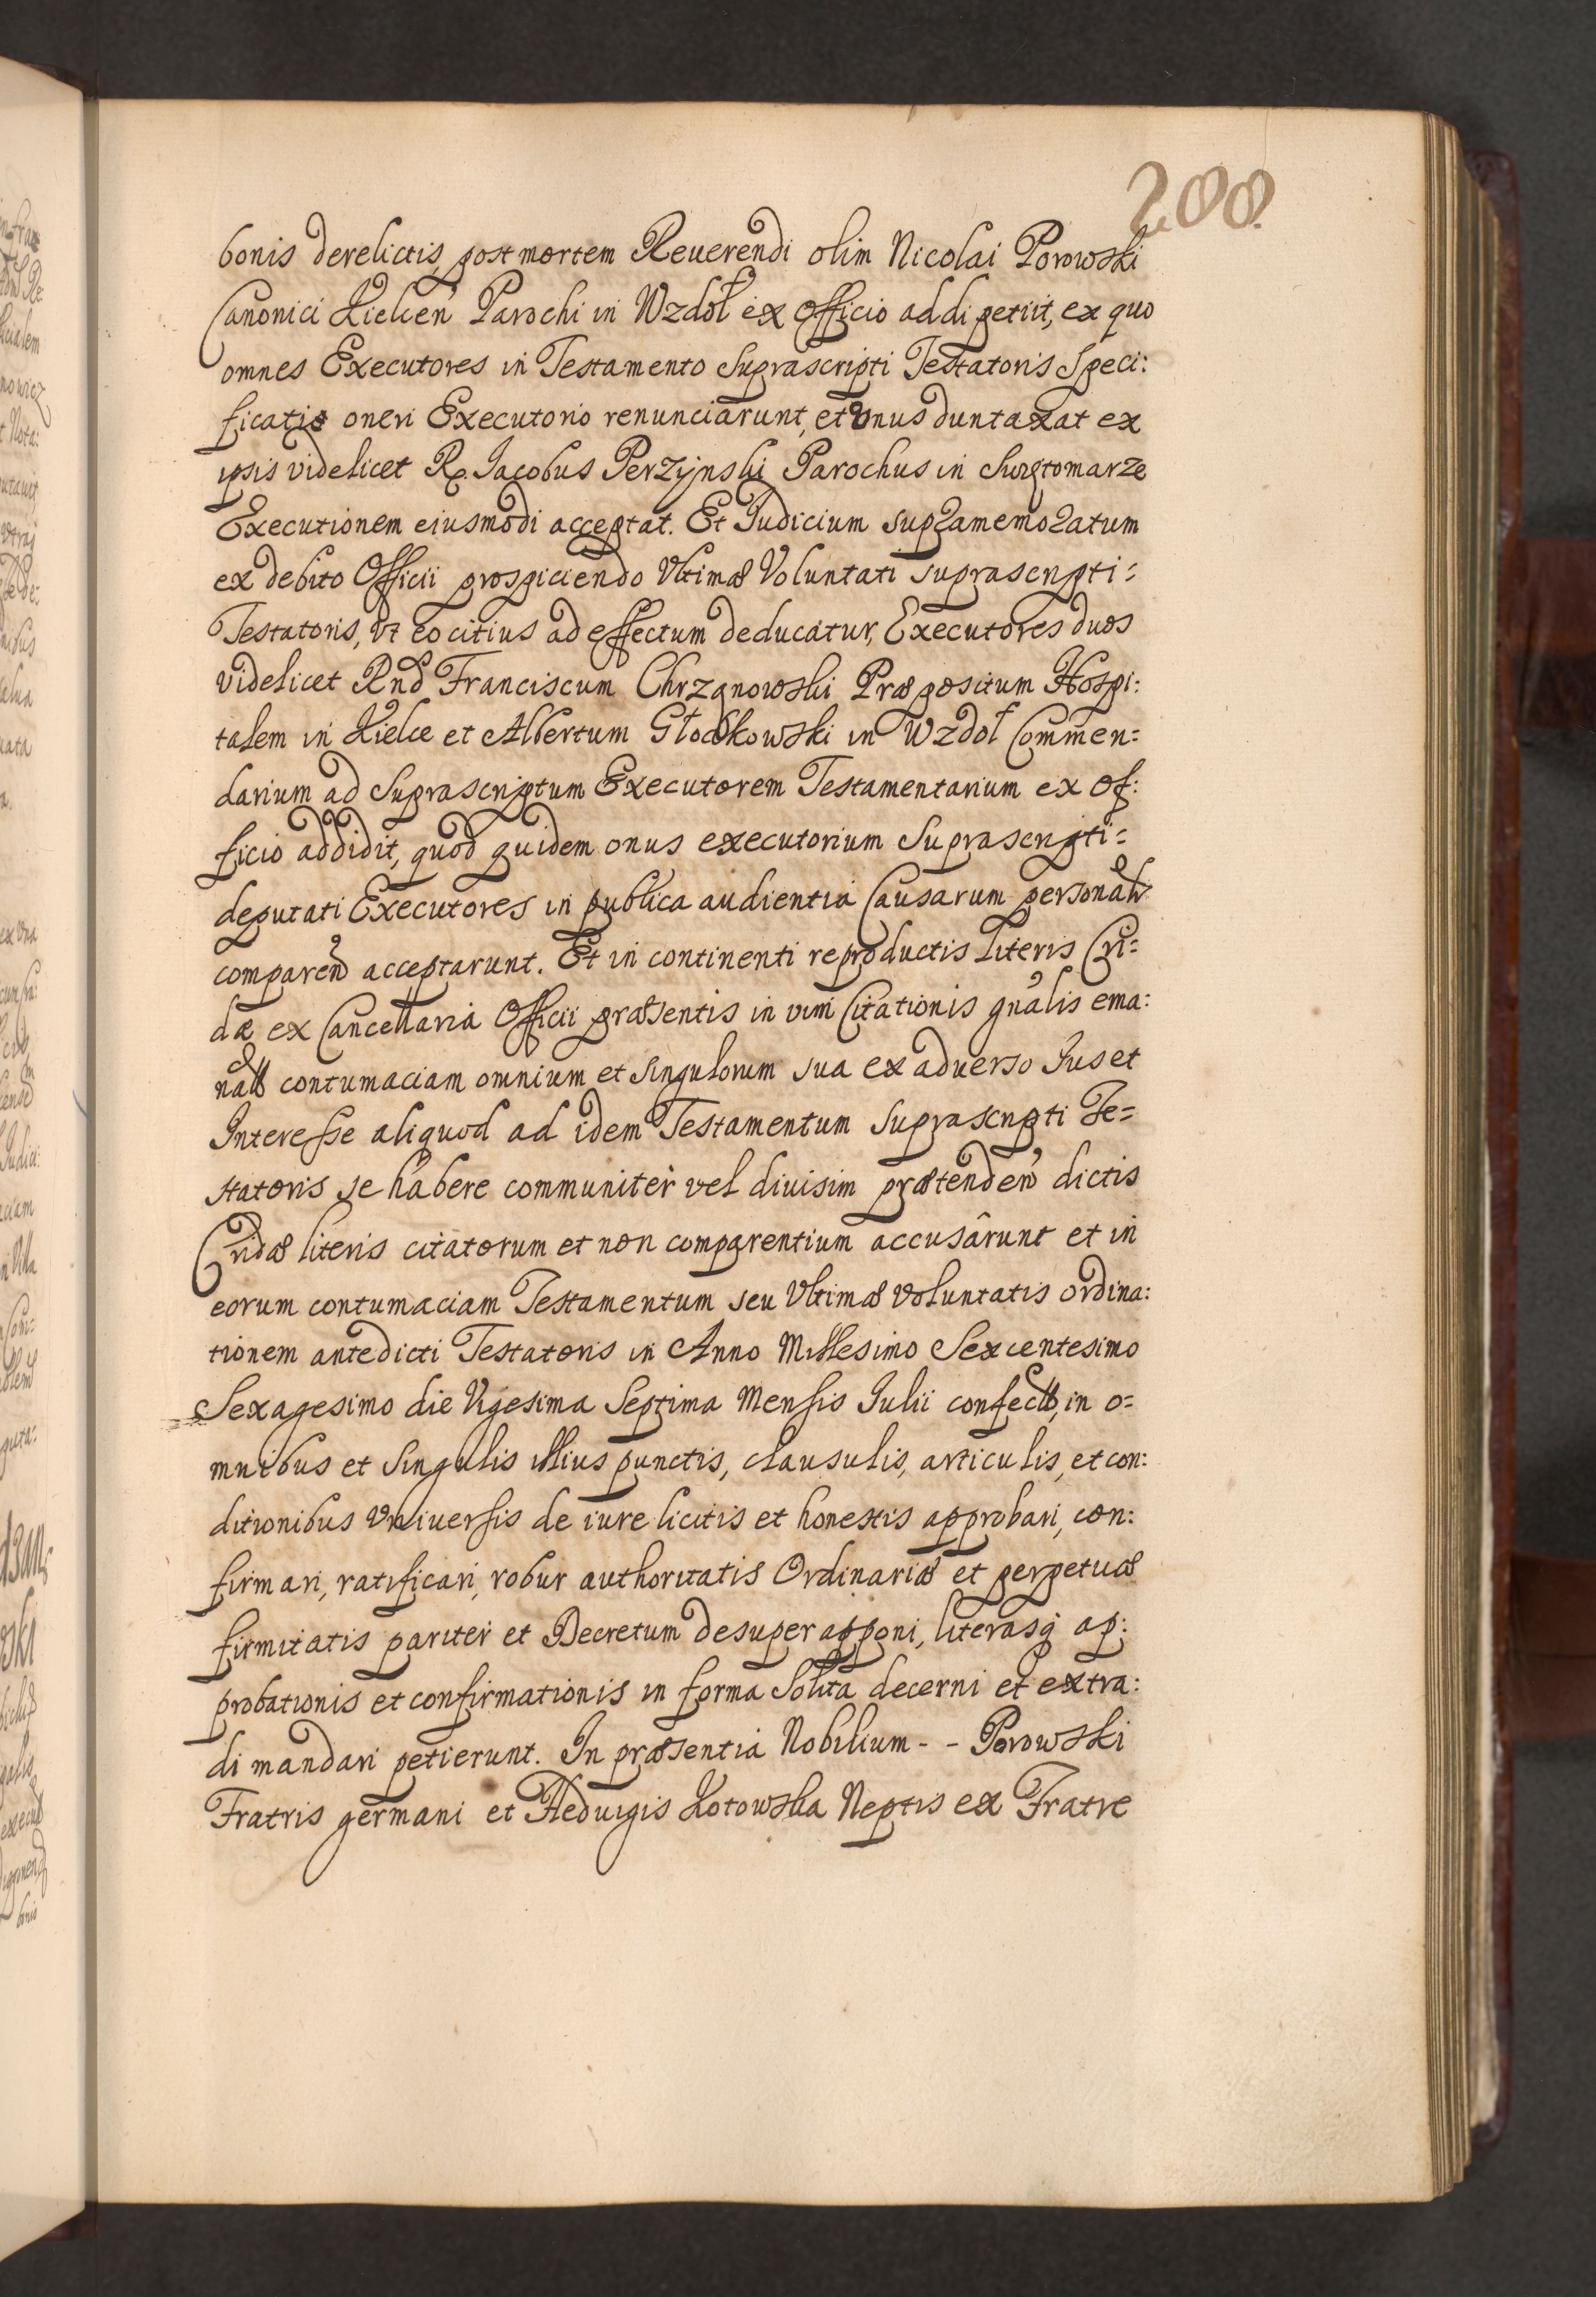 200.
bonis derelictis post mortem Reuerendi olim Nicolai Porowski
Canonici Kielcen̄ Parochi in Wzdoł ex Officio addi petiit, ex quo
omnes Executores in Testamento Suprascripti Testatoris Speci:
ficatis oneri Executorio renunciarunt, et Vnus duntaxat ex
ipsis videlicet R. Jacobus Perzynski Parochus in
Executionem eiusmodi acceptat. Et Judicium supramemoratum
ex debito Officii prospiciendo Vltimæ Voluntati suprascripti=
Testatoris, vt eo citius ad effectum deducatur, Executores duos
videlicet Rnd Franciscum Chrzanowski Præpositum Hospi:
talem in Kielce et Albertum in Wzdoł Commen=
darium ad Suprascriptum Executorem Testamentarium ex Of:
ficio addidit, quod quidem onus executorium Suprascripti=
deputati Executores in publica audientia Causarum personalr
comparen acceptarunt. Et in continenti reproductis Literis Cri=
dæ ex Cancellaria Officii præsentis in vim Citationis gnalis ema:
nat contumaciam omnium et singulorum sua ex aduerso Jus et
Interesse aliquod ad idem Testamentum Suprascripti Te=
statoris se habere communiter vel diuisim prætenden dictis
Cridæ literis citatorum et non comparentium accusârunt et in
eorum contumaciam Testamentum seu Vltimæ Voluntatis ordina:
tionem antedicti Testatoris in Anno Millesimo Sexcentesimo
Sexagesimo die Vigesima Septima Mensis Julii confect, in o=
mnibus et Singulis illius punctis, clausulis, articulis, et con:
ditionibus Vniuersis de iure licitis et honestis approbari, con:
firmari, ratificari, robur authoritatis Ordinariæ et perpetuæ
firmitatis pariter et Decretum desuper apponi, literasq ap:
probationis et confirmationis in forma Solita decerni et extra:
di mandari petierunt. In præsentia Nobilium - - Porowski
Fratris germani et Heduigis Kotowska Neptis ex Fratre